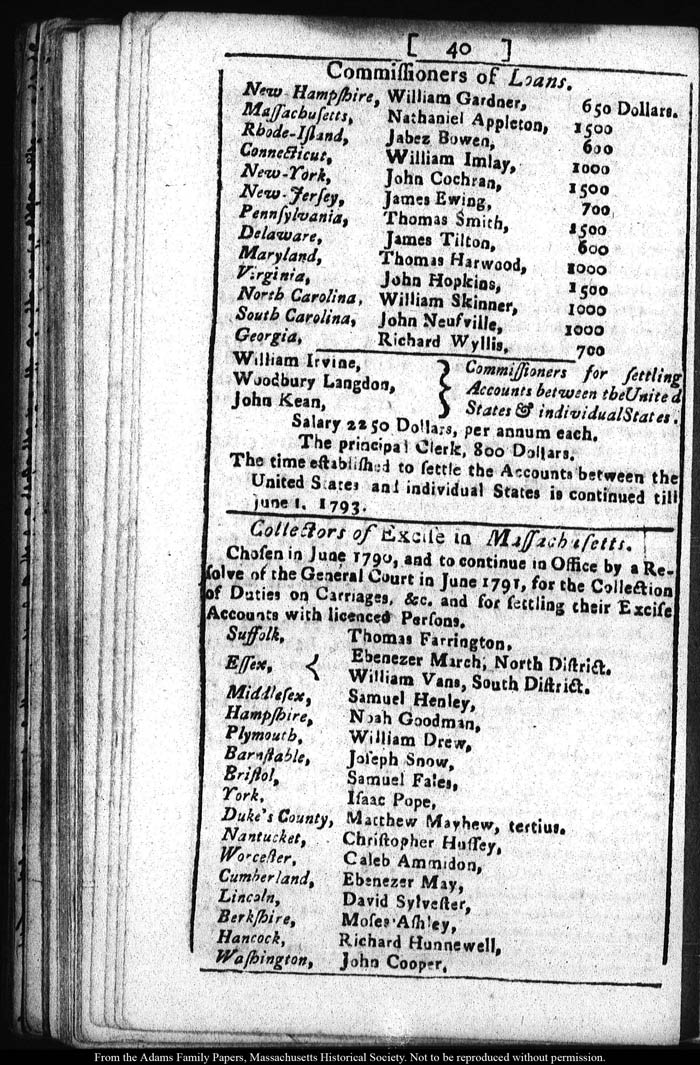 [ 40 ]
Commiſſioners of Loans.
New-Hampſhire, William Gardner, 650 Dollars.
Maſſachuſetts, Nathaniel Appleton, 1500
Rhode-Iſland, Jabez Bowen, 600
Connecticut, William Imlay, 1000
New-York, John Cochran, 1500
New-Jerſey, James Ewing, 700
Pennſylvania, Thomas Smith, 1500
Delaware, James Tilton, 600
Maryland, Thomas Harwood, 1000
Virginia, John Hopkins, 1500
North Carolina, William Skinner, 1000
South Carolina, John Neufville, 1000
Georgia, Richard Wyllis, 700
William Irvine, } Commiſſioners for ſettling
Woodbury Langdon, Accounts between the United
John Kean, States & individual States.
Salary 2250 Dollars, per annum each.
The principal Clerk, 800 Dollars.
The time eſtabliſhed to ſettle the Accounts between the
United States and individual States is continued till
June 1. 1793.
Collectors of Exciſe in Maſſachuſetts.
Choſen in June 1790, and to continue in Office by a Re-
ſolve of the General Court in June 1791, for the Collection
of Duties on Carriages, &c. and for ſettling their Exciſe
Accounts with licenced Perſons.
Suffolk, Thomas Farrington,
Eſſex, { Ebenezer March, North Diſtrict.
William Vans, South Diſtrict.
Middleſex, Samuel Henley,
Hampſhire, Noah Goodman,
Plymouth, William Drew,
Barnſtable, Joſeph Snow,
Briſtol, Samuel Fales,
York, Iſaac Pope,
Duke's County, Matthew Mayhew, tertius.
Nantucket, Chriſtopher Huſſey,
Worceſter, Caleb Ammidon,
Cumberland, Ebenezer May,
Lincoln, David Sylveſter,
Berkſhire, Moſes Aſhley,
Hancock, Richard Hunnewell,
Waſhington, John Cooper,
From the Adams Family Papers, Massachusetts Historical Society. Not to be reproduced without permission.